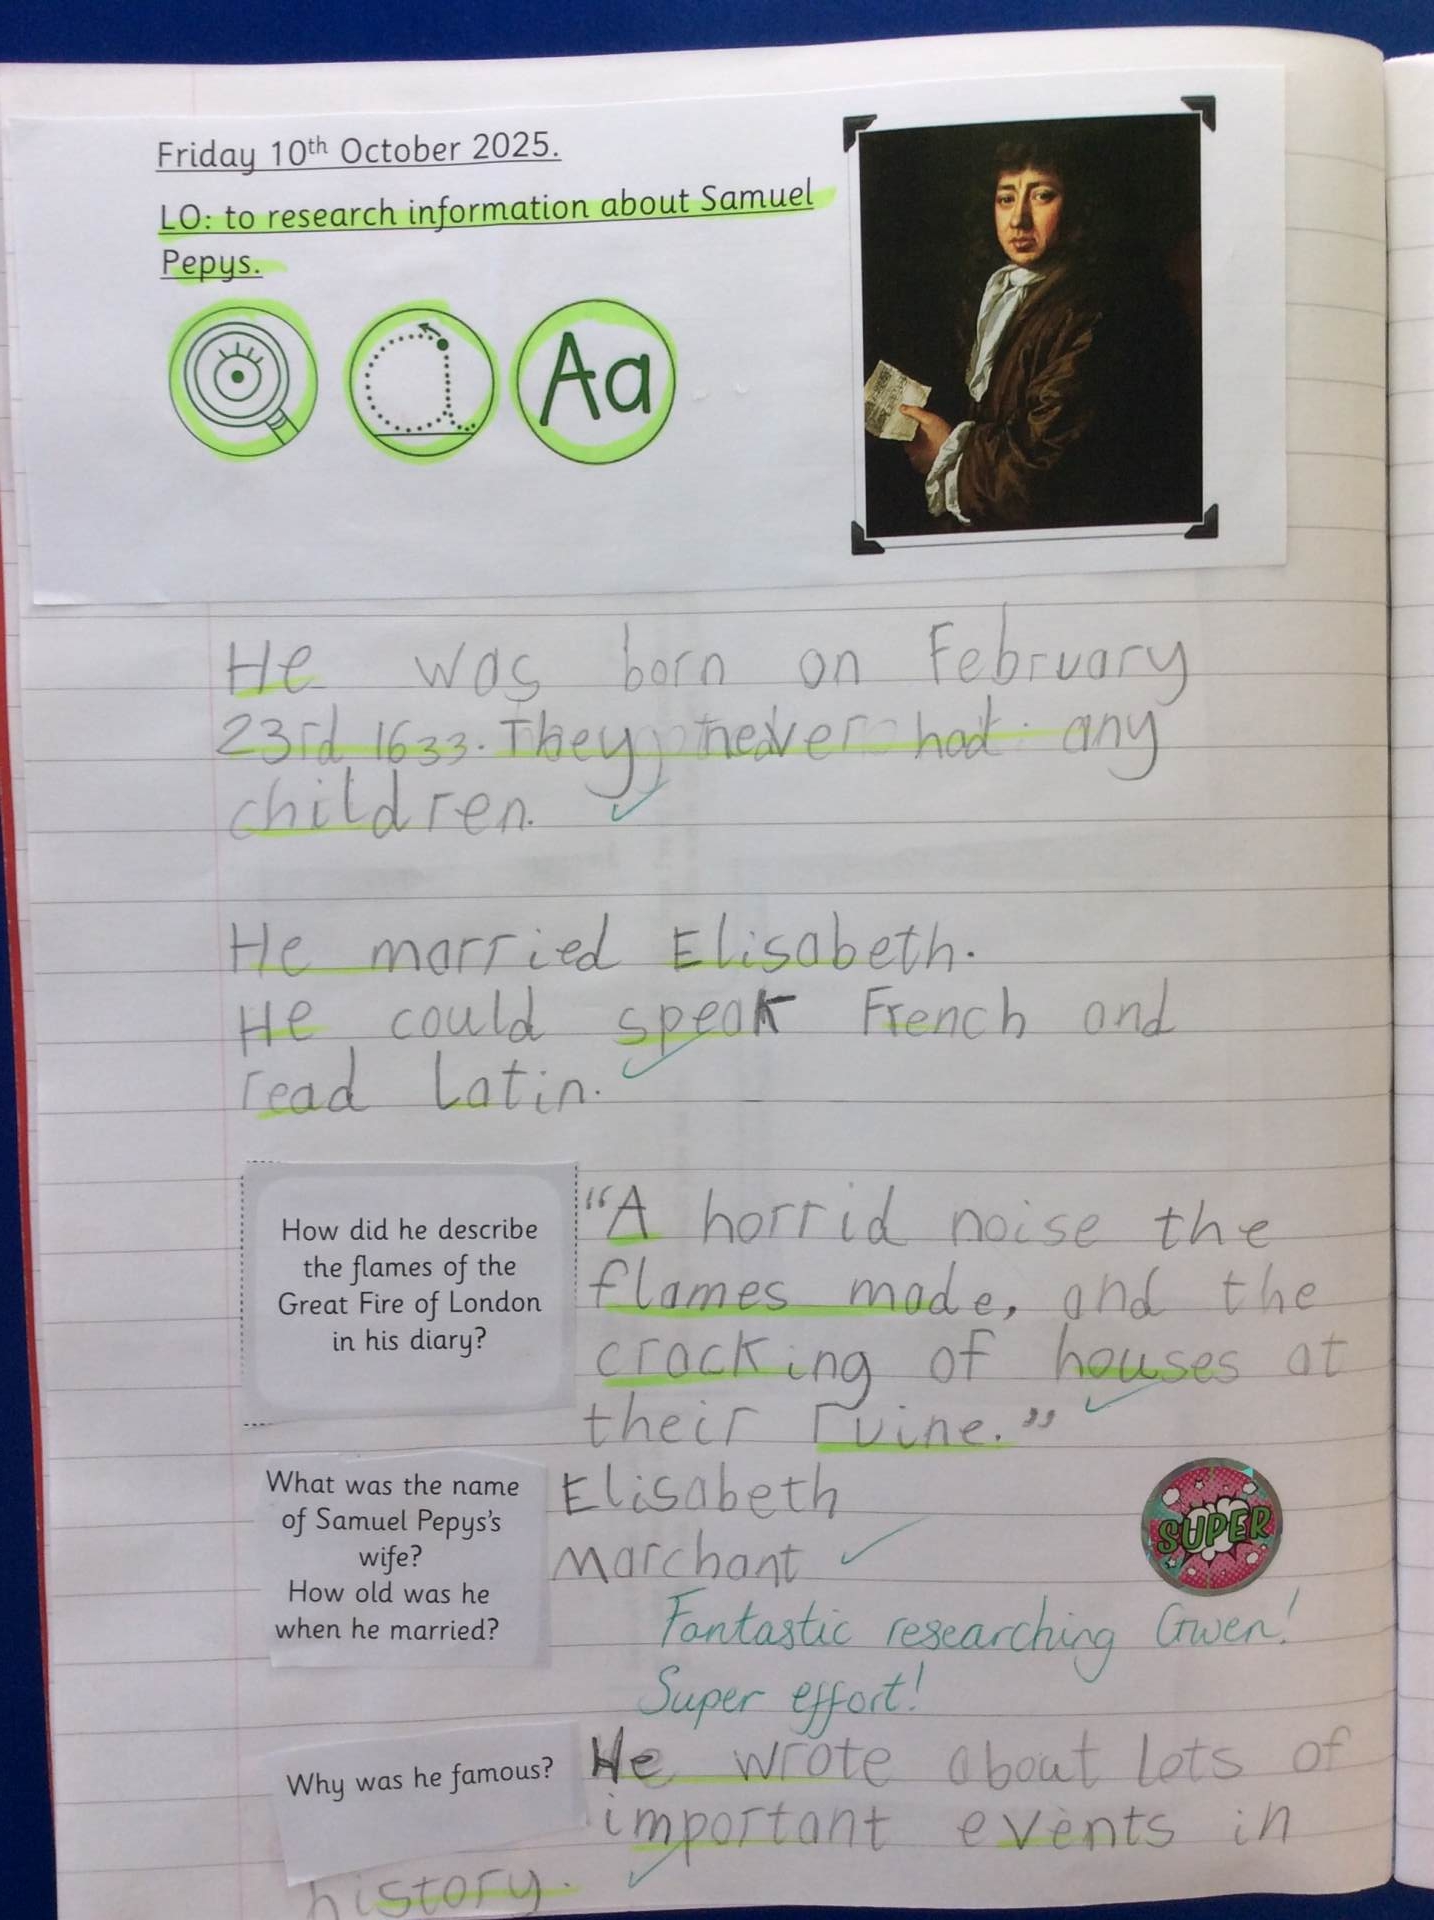 Friday 10th October 2025.
LO: to research information about Samuel
Pepys.
Aa
He was born on February
23rd 1633. They never had any
children.
He married Elisabeth.
He could speak French and
read Latin.
How did he describe
the flames of the
Great Fire of London
in his diary?
"A horrid noise the
flames made, and the
cracking of houses at
their ruine."
What was the name
of Samuel Pepys's
wife?
How old was he
when he married?
Elisabeth
Marchant
SUPER
Fantastic researching Gwen!
Super effort!
Why was he famous?
He wrote about lots of
important events in
history.